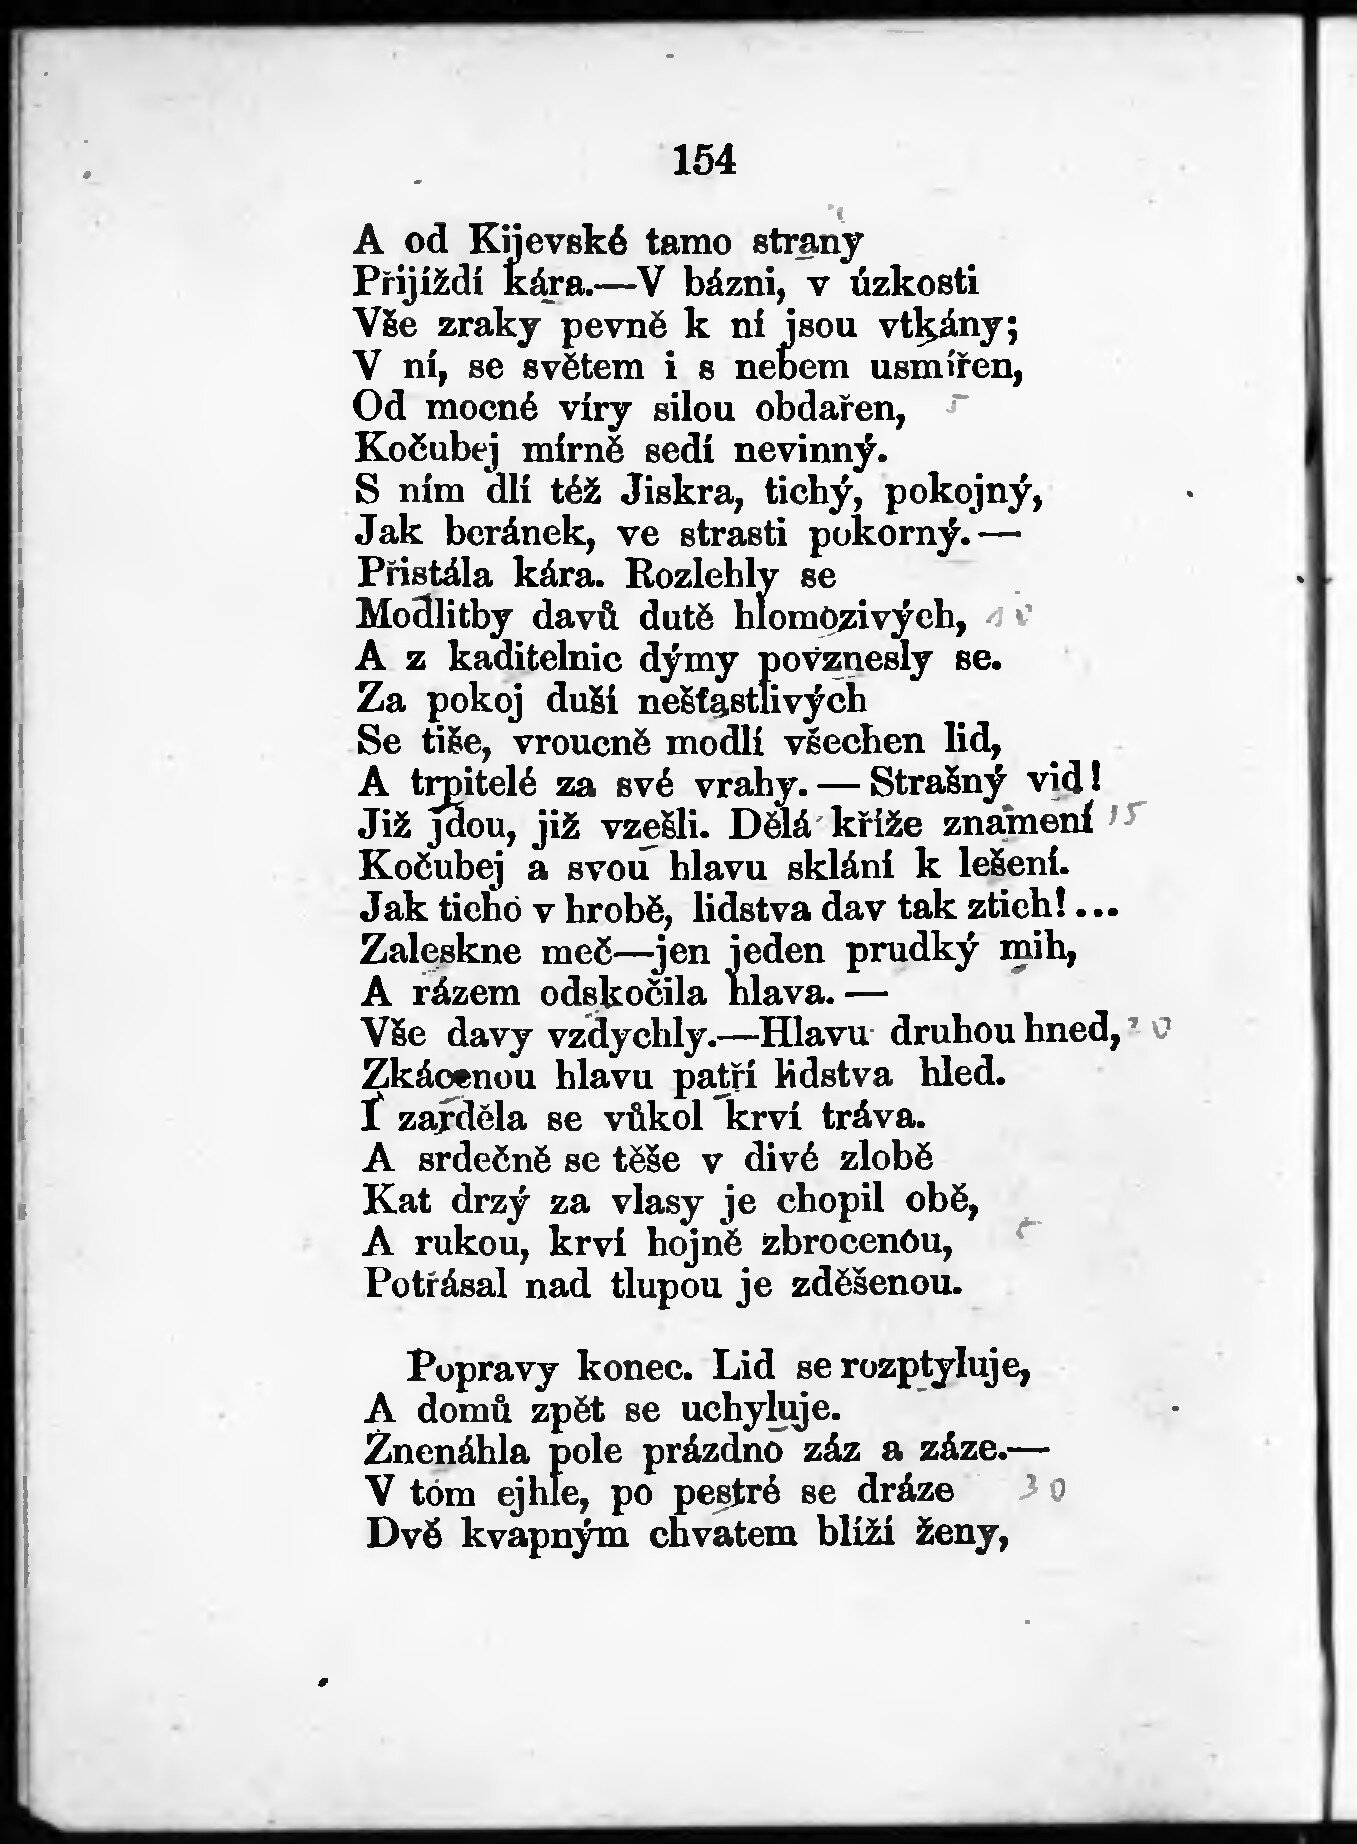 154
A od Kijevské tamo strany
Přijíždí kára.—V bázni, v úzkosti
Vše zraky pevně k ní jsou vtkány;
V ní, se světem i s nebem usmířen,
Od mocné víry silou obdařen, 5
Kočubej mírně sedí nevinný.
S ním dlí též Jiskra, tichý, pokojný,
Jak beránek, ve strasti pokorný.—
Přistála kára. Rozlehly se
Modlitby davů dutě hlomozivých,
A z kaditelnic dýmy povznesly se.
Za pokoj duší nešťastlivých
Se tiše, vroucně modlí všechen lid,
A trpitelé za své vrahy. — Strašný vid!
Již jdou, již vzešli. Dělá kříže znamení 15
Kočubej a svou hlavu sklání k lešení.
Jak ticho v hrobě, lidstva dav tak ztich!...
Zaleskne meč—jen jeden prudký mih,
A rázem odskočila hlava. —
Vše davy vzdychly.—Hlavu druhou hned, 20
Zkácenou hlavu patří lidstva hled.
I zarděla se vůkol krví tráva.
A srdečně se těše v divé zlobě
Kat drzý za vlasy je chopil obě,
A rukou, krví hojně zbrocenou,
Potřásal nad tlupou je zděšenou.
Popravy konec. Lid se rozptyluje,
A domů zpět se uchyluje.
Znenáhla pole prázdno záz a záze.—
V tom ejhle, po pestré se dráze 30
Dvě kvapným chvatem blíží ženy,